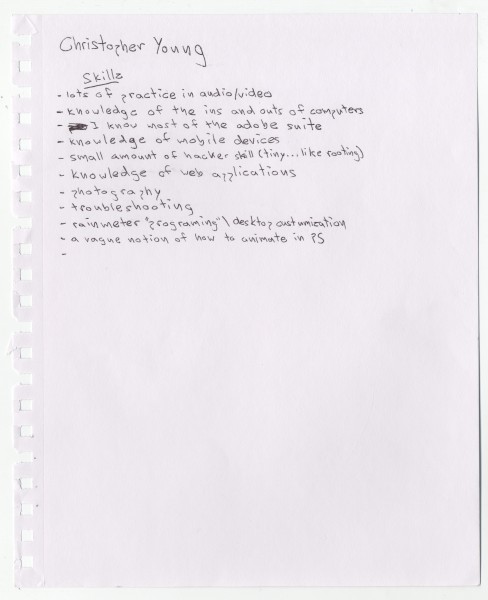 Christopher Young
Skills
- lots of practice in audio/video
- knowledge of the ins and outs of computers
- I know most of the adobe suite
- knowledge of mobile devices
- small amount of hacker skill (tiny...like rooting)
- knowledge of web applications
- photography
- troubleshooting
- rainmeter "programing"\desktop custumization
- a vague notion of how to animate in PS
-